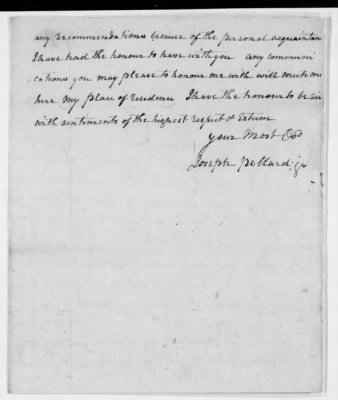 any recommendations because of the personal acquaintan
I have had the honour to have with you any communi
cations you may please to honour me with will meet me
here my place of Residence I have the honour to be Sir
with sentiments of the highest respect & Esteem
Your Most Obd
Joseph Pollard jr